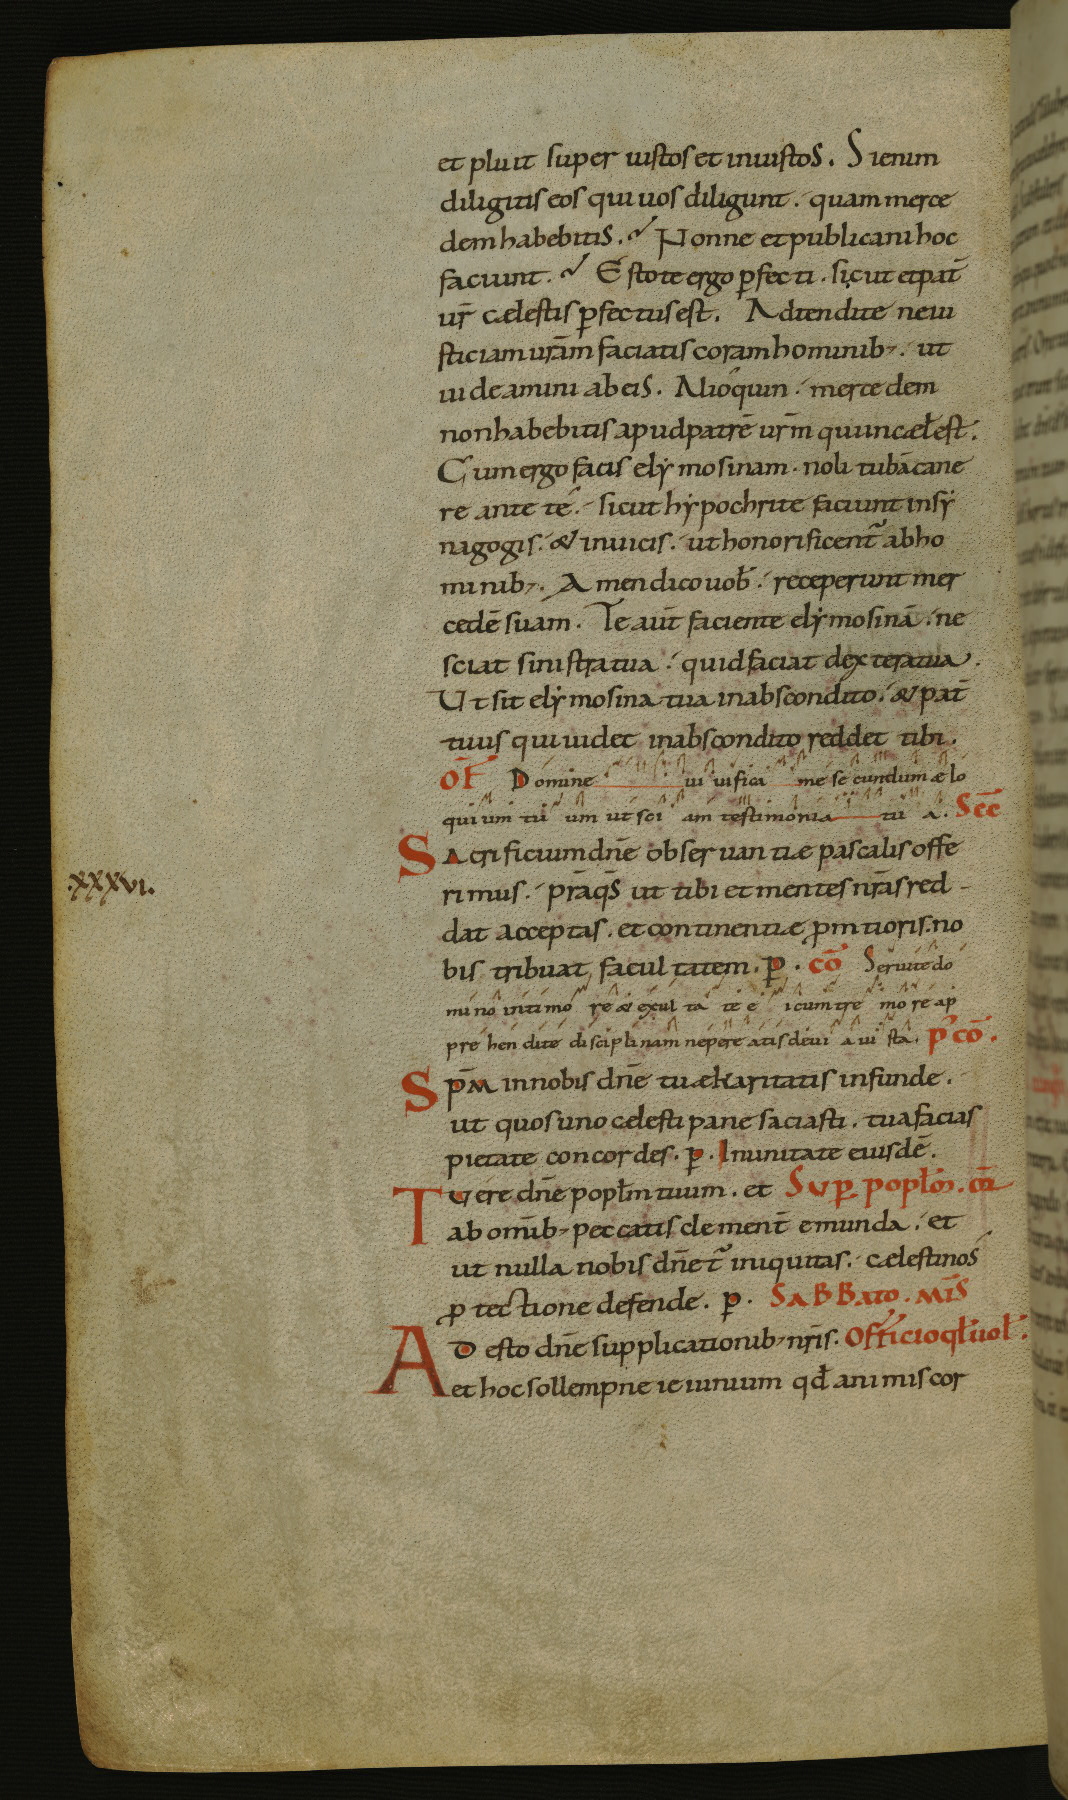 et pluit super iustos et iniustos. Si enim
diligitis eos qui uos diligunt. quam merce
dem habebitis. Nonne et publicani hoc
faciunt. Estote ergo p̄fecti. sicut et pat̄
ur̄ cælestis p̄fectus est. Adtendite ne iu
sticiam ur̄am faciatis coram hominib;. ut
uideamini ab eis. Alioquin. mercedem
non habebitis apud patrē ur̄m qui in cæł est.
Cum ergo facis elymosinam. noli tubā cane
re ante tē. sicut hypochrite faciunt in sy
nagogis. & in uicis. ut honorificent̄ ab ho
minib;. Amen dico uob̄. receperunt mer
cedē suam. Te aūt faciente elymosinā. ne
sciat sinistra tua. quid faciat dextera tua.
Ut sit elymosina tua in abscondito. & pat̄
tuus qui uidet in abscondito reddet tibi.
OF̄ Domine ui uifica me secundum ælo
quium tuum ut sci am testimonia tu a. Sēc
xxxvi.
Sacrificium dn̄e obseruantiæ pascalis offe
rimus. pr̄a q̄s ut tibi et mentes nr̄as red-
dat acceptas. et continentiæ p̄mtioris. no
bis tribuat facultatem. p̄. cō Seruite do
mino in timo re & exul ta te e i cum tre mo re ap
pre hen dite disciplinam ne pere atis de ui a iu sta. p̄ cō.
Sp̄m in nobis dn̄e tuæ karitatis infunde.
ut quos uno celesti pane saciasti. tua facias
pietate concordes. p̄. In unitate eiusdē.
Tuere dn̄e popłm tuum. et Sup̄ popłm. or̄
ab omīb; peccatis clement̄ emunda. et
ut nulla nobis dn̄et̄ iniquitas. cælesti nos
p̄tectione defende. p̄. SABBato. mīs
Adesto dn̄e supplicationib; nr̄is. Officio qł uoł.
et hoc sollempne ieiunium qđ animis cor